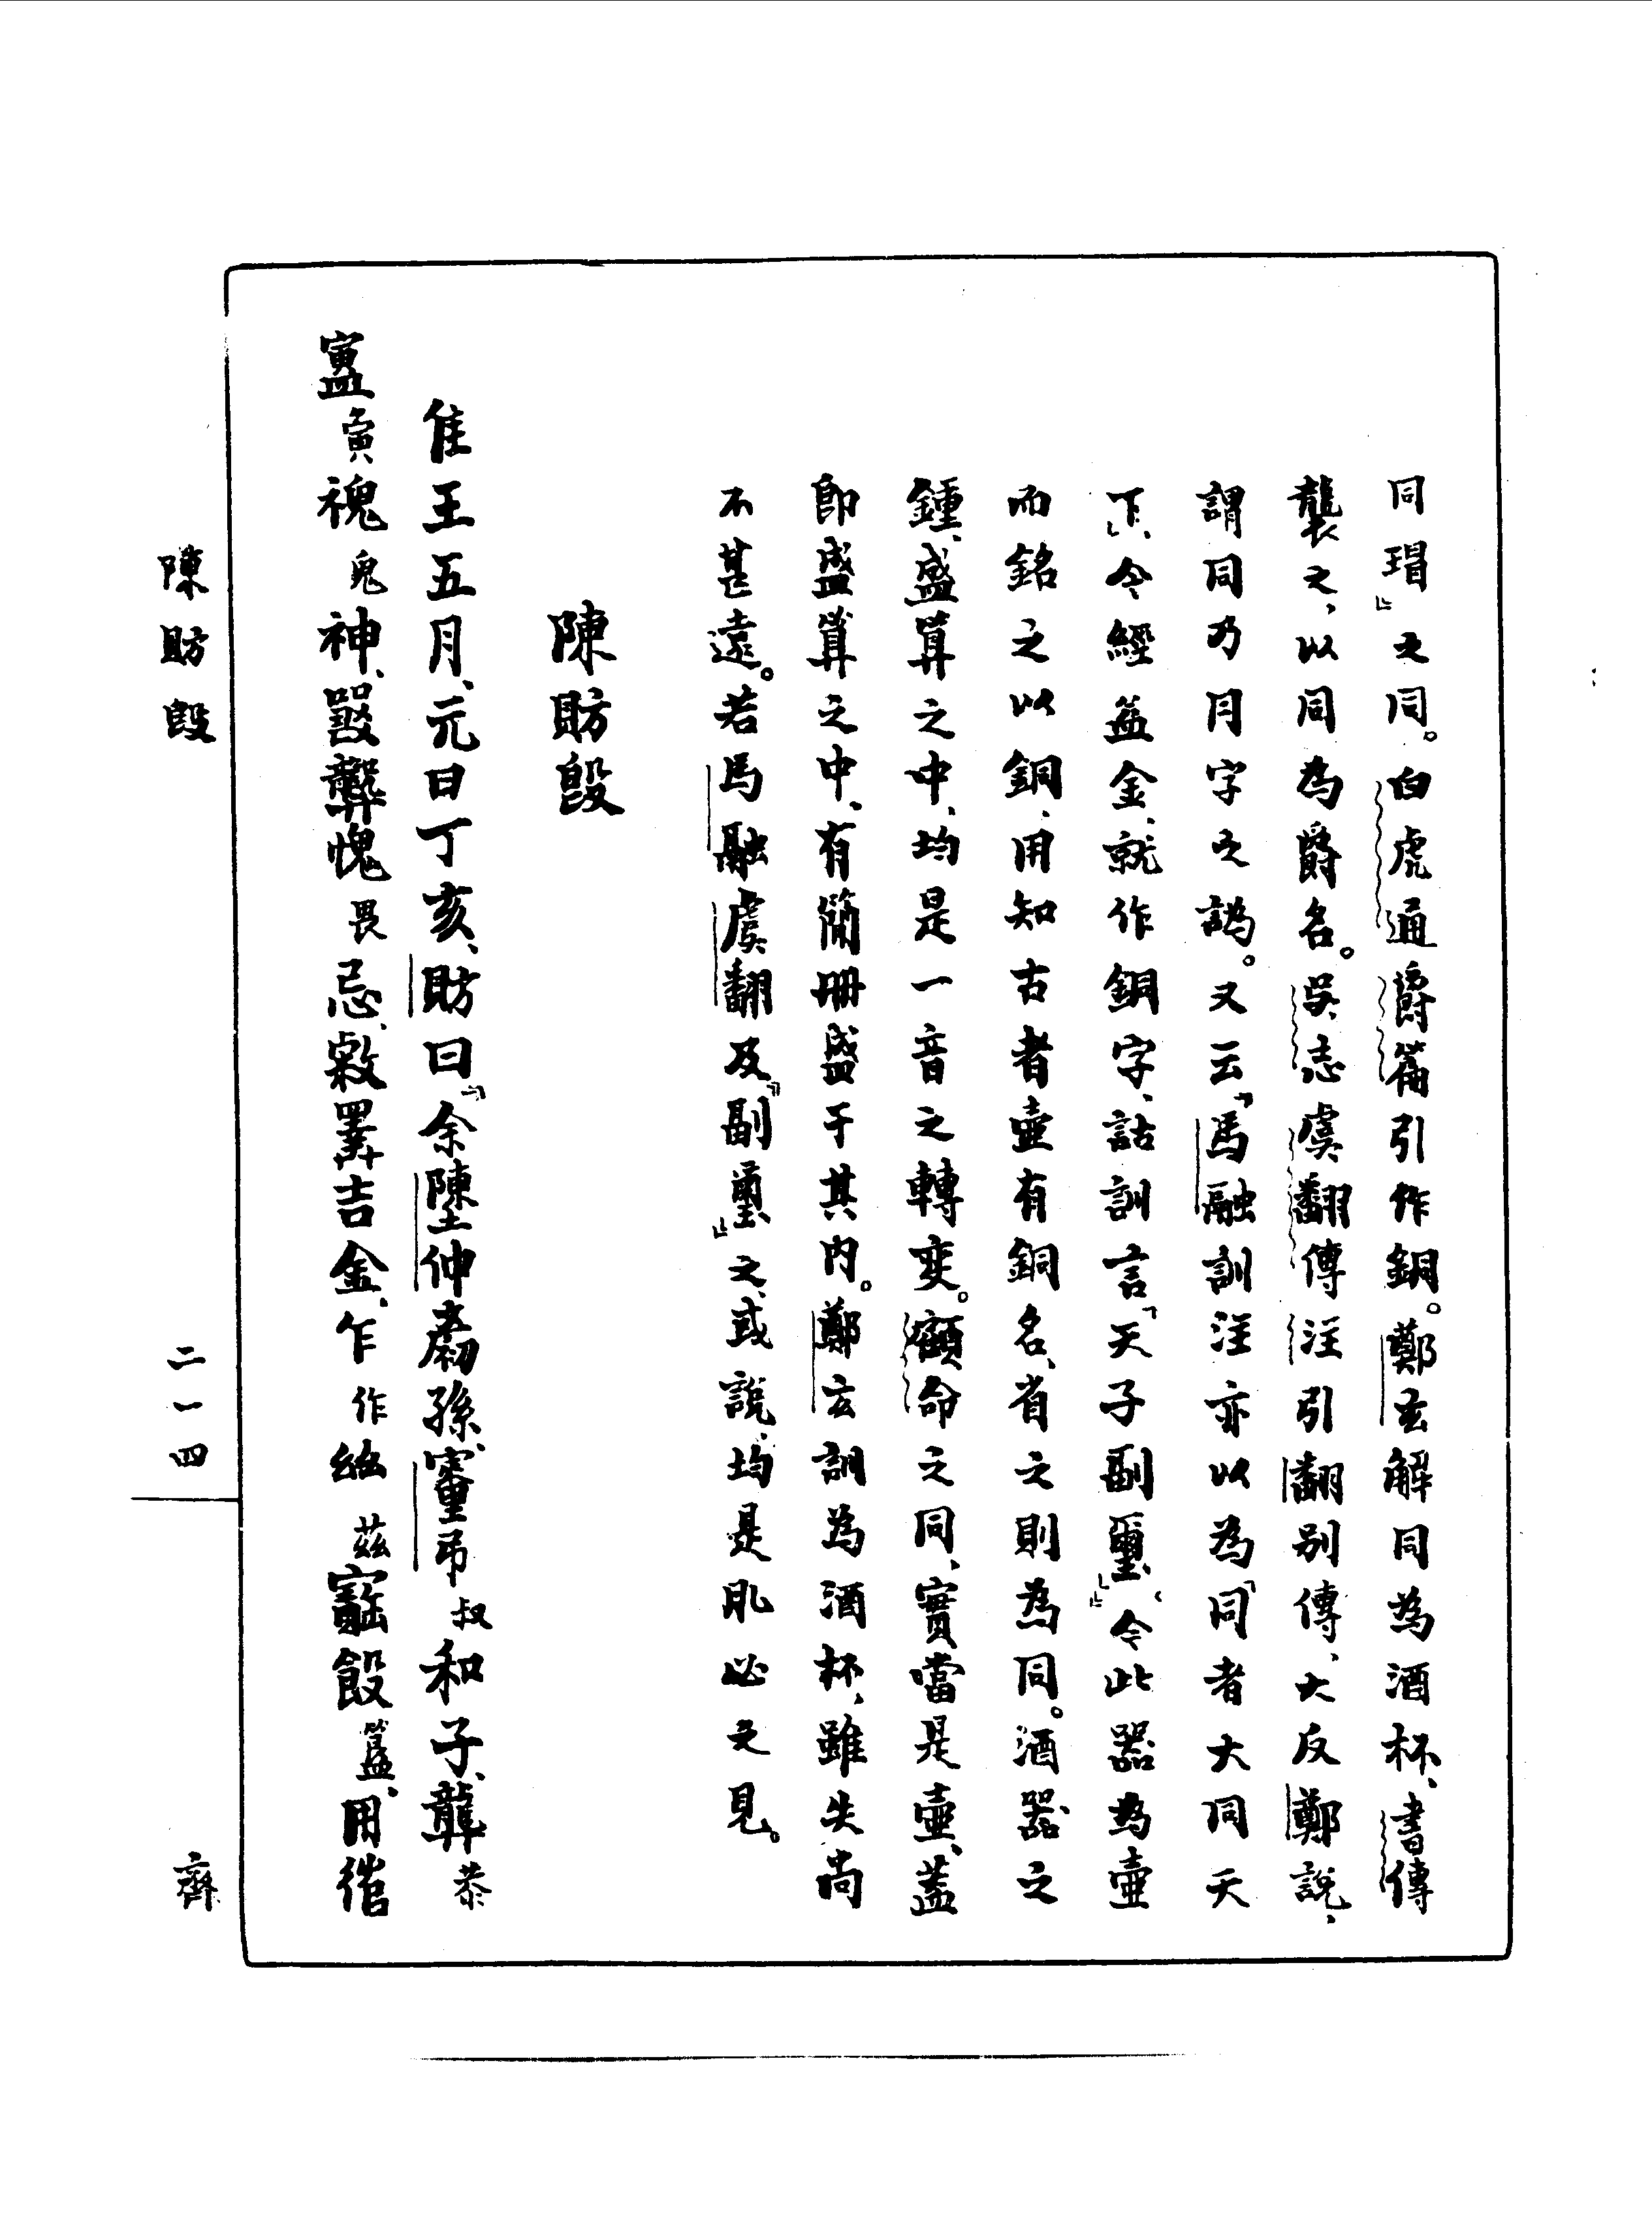 同瑁』之同。白虎通爵篇引作銅。鄭玄解同為酒杯、書傳
襲之、以同為爵名。吳志虞翻傳注引翻别傳、大反鄭說、
謂同乃冃字之譌。又云『馬融訓注亦以為「同者大同天
下」、今經益金、就作銅字、詁訓言「天子副璽」』。今此器為壺
而銘之以銅、用知古者壺有銅名、省之則為同。酒器之
鍾、盛算之中、均是一音之轉變。顧命之同、實當是壺、蓋
即盛算之中、有簡冊盛于其内。鄭玄訓為酒杯、雖失尚
不甚遠。若馬融虞翻及『副璽』之或說、均是肊必之見。
陳肪𣪘
隹王五月、元日丁亥、肪曰『余陳仲孫、弔叔和子、龏恭
夤寅禩鬼神、龏愧畏忌、吉金、乍作𢆶茲寶𣪘簋、用
陳肪𣪘
二一四
齊